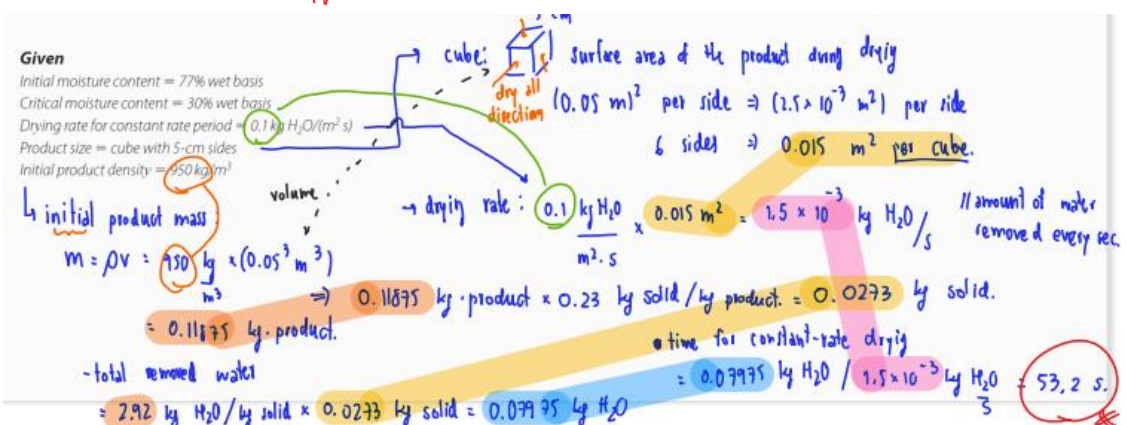 Given
Initial moisture content = 77% wet basis
Critical moisture content = 30% wet basis
Drying rate for constant rate period = 0.1 kg H₂O/(m² s)
Product size = cube with 5-cm sides
Initial product density = 950 kg/m³
cube:
dry all
direction
surface area of the product during dryig
(0.05 m)² per side ⇒ (2.5 × 10⁻³ m²) per side
6 sides ⇒ 0.015 m² per cube.
volume
↳ initial product mass
m = ρv = 950 kg/m³ × (0.05³ m³)
= 0.11875 kg. product.
→ dryin rate : 0.1 kg H₂O / m². s × 0.015 m² = 1.5 × 10⁻³ kg H₂O/s
// amount of water
removed every sec.
⇒ 0.11875 kg. product × 0.23 kg solid / kg product. = 0.0273 kg solid.
- total removed water
= 2.92 kg H₂O / kg solid × 0.0273 kg solid = 0.07975 kg H₂O
• time for constant-rate dryig
= 0.07975 kg H₂O / 1.5 × 10⁻³ kg H₂O/s = 53,2 s.